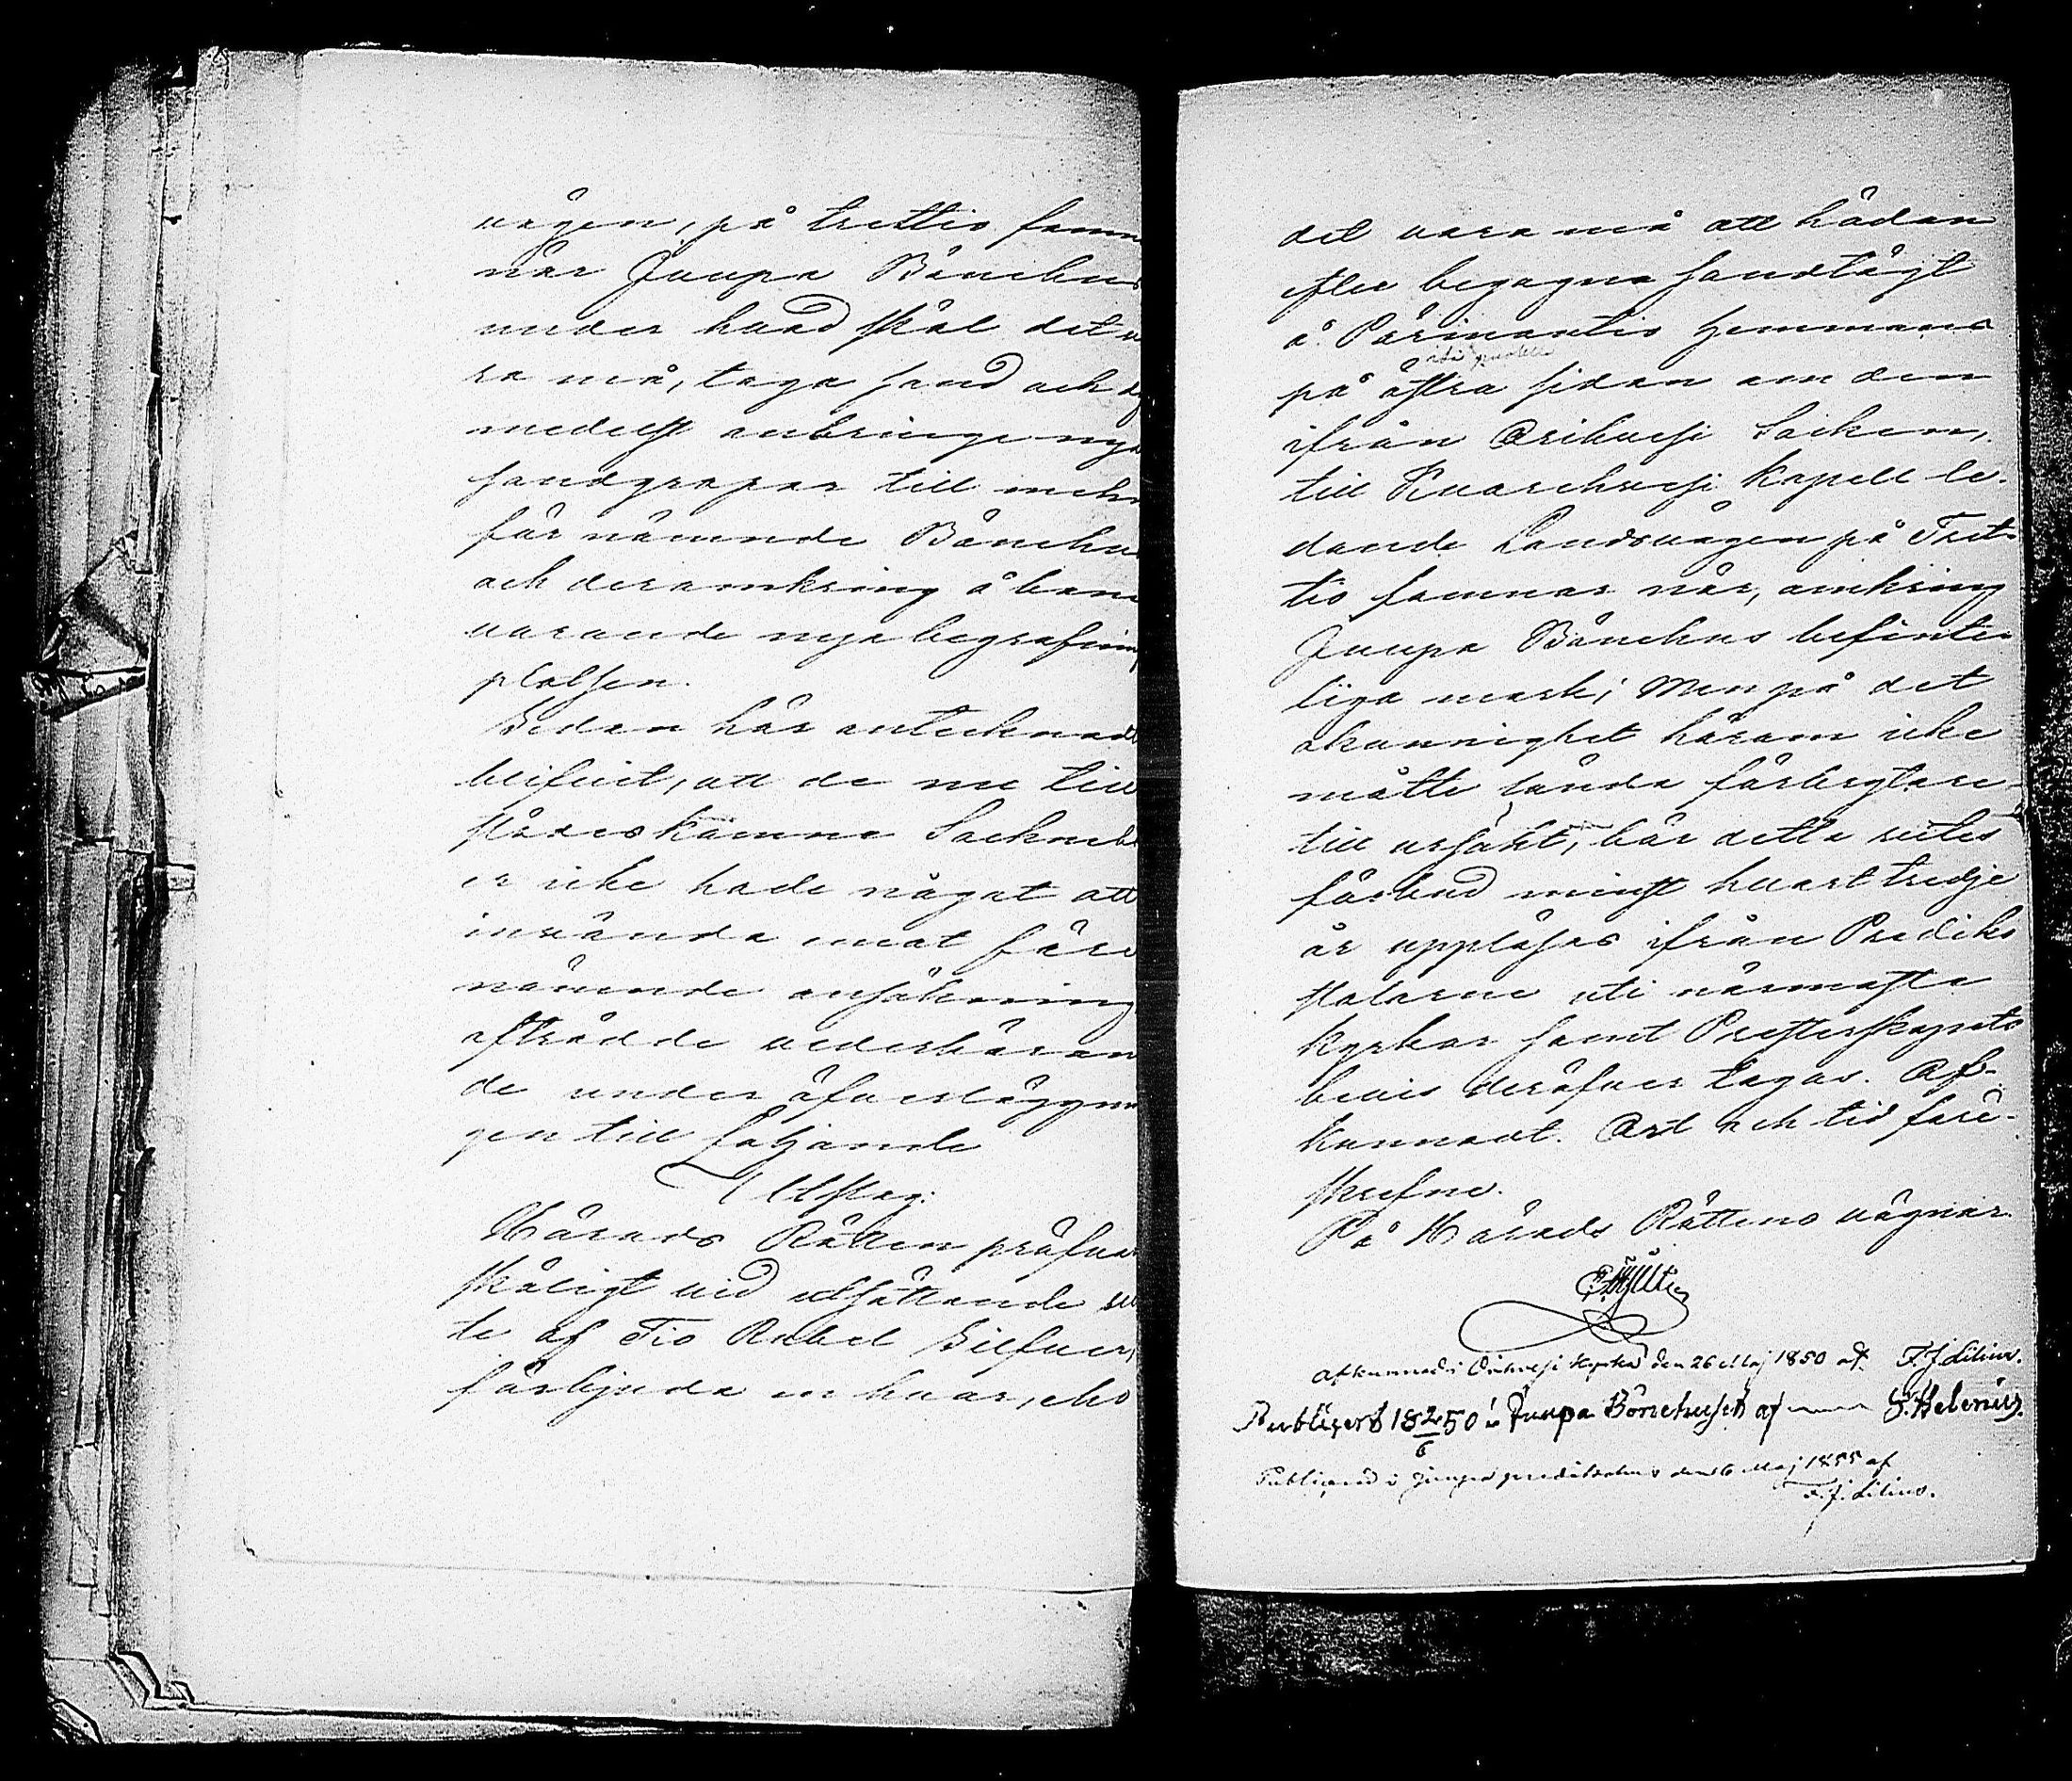 vägen, på trettio famn
när Juupa Bönehus
under hvad skäl det v
ra må, taga sand och
medelst anbringe nya
sandgropar till mehn
för nämnde Bönehus
och deromkring å bem
varande nya begrafnin
platsen.
Sedan här antecknadt
blifvit, att de nu till
städes komne Sockneb
er icke hade något att
invända mot före
nämnde ansökning
afträdde vederböran
de under öfverläggni
gen till följande
Utslag:
Härads Rätten pröfvar
skäligt vid utsättande vi
te af Tio Rubel Silfver,
förbjuda en hvar, eho
det vara må att hädan
efter begagna sandtägt
å Pärimantis Hemmans
på östra sidan om den
ifrån Orihvesi Socken,
till Kuorehvesi Kapell le-
dande Landsvägen på Tret-
tio famnar när, omkring
Juupa Bönehus befint-
liga mark; Men på det
okunnighet härom icke
måtte lända förbrytare
till ursäkt, bör detta vites
förbud minst hvart tredje
år uppläsas ifrån Prediko
stolarne uti närmaste
kyrkor samt Presterskapets
bevis deröfver tagas. Af-
kunnadt. Ort och tid före-
skrefne.
På Härads Rättens vägnar.
Afkunnad i Orihvesi kyrka den 26 Maj 1850 af F. J. Lilius.
Publicert 18 2/6 50 i Juupa Bönehuset af S. Helenius.
Publicerad i Juupa predikohus den 6 Maj 1855 af
F. J. Lilius.